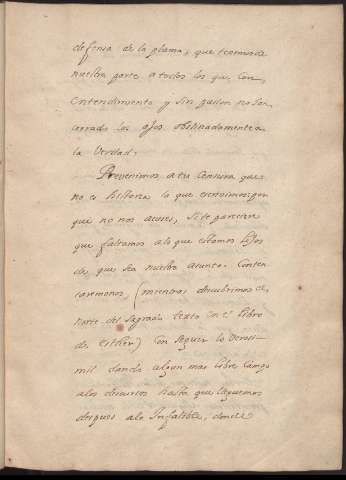 defensa de la pluma; que tenemos de
nuestra parte a todos los que con
entendimiento y sin passion no han
cerrado los ojos obstinadamente a
la Verdad.
Prevenimos a tu Censura que
no es historia lo que escrivimos; por
que no nos acuses, si te pareciere
que faltamos a lo que estamos lejos
de que sea nuestro asunto. Conten
taremonos, (mientras descubrimos el
norte del Sagrado texto en el libro
de Esther) con seguir lo verosi-
mil dando algun mas libre campo
a los discursos hasta que lleguemos
despues a lo Infalible, donde